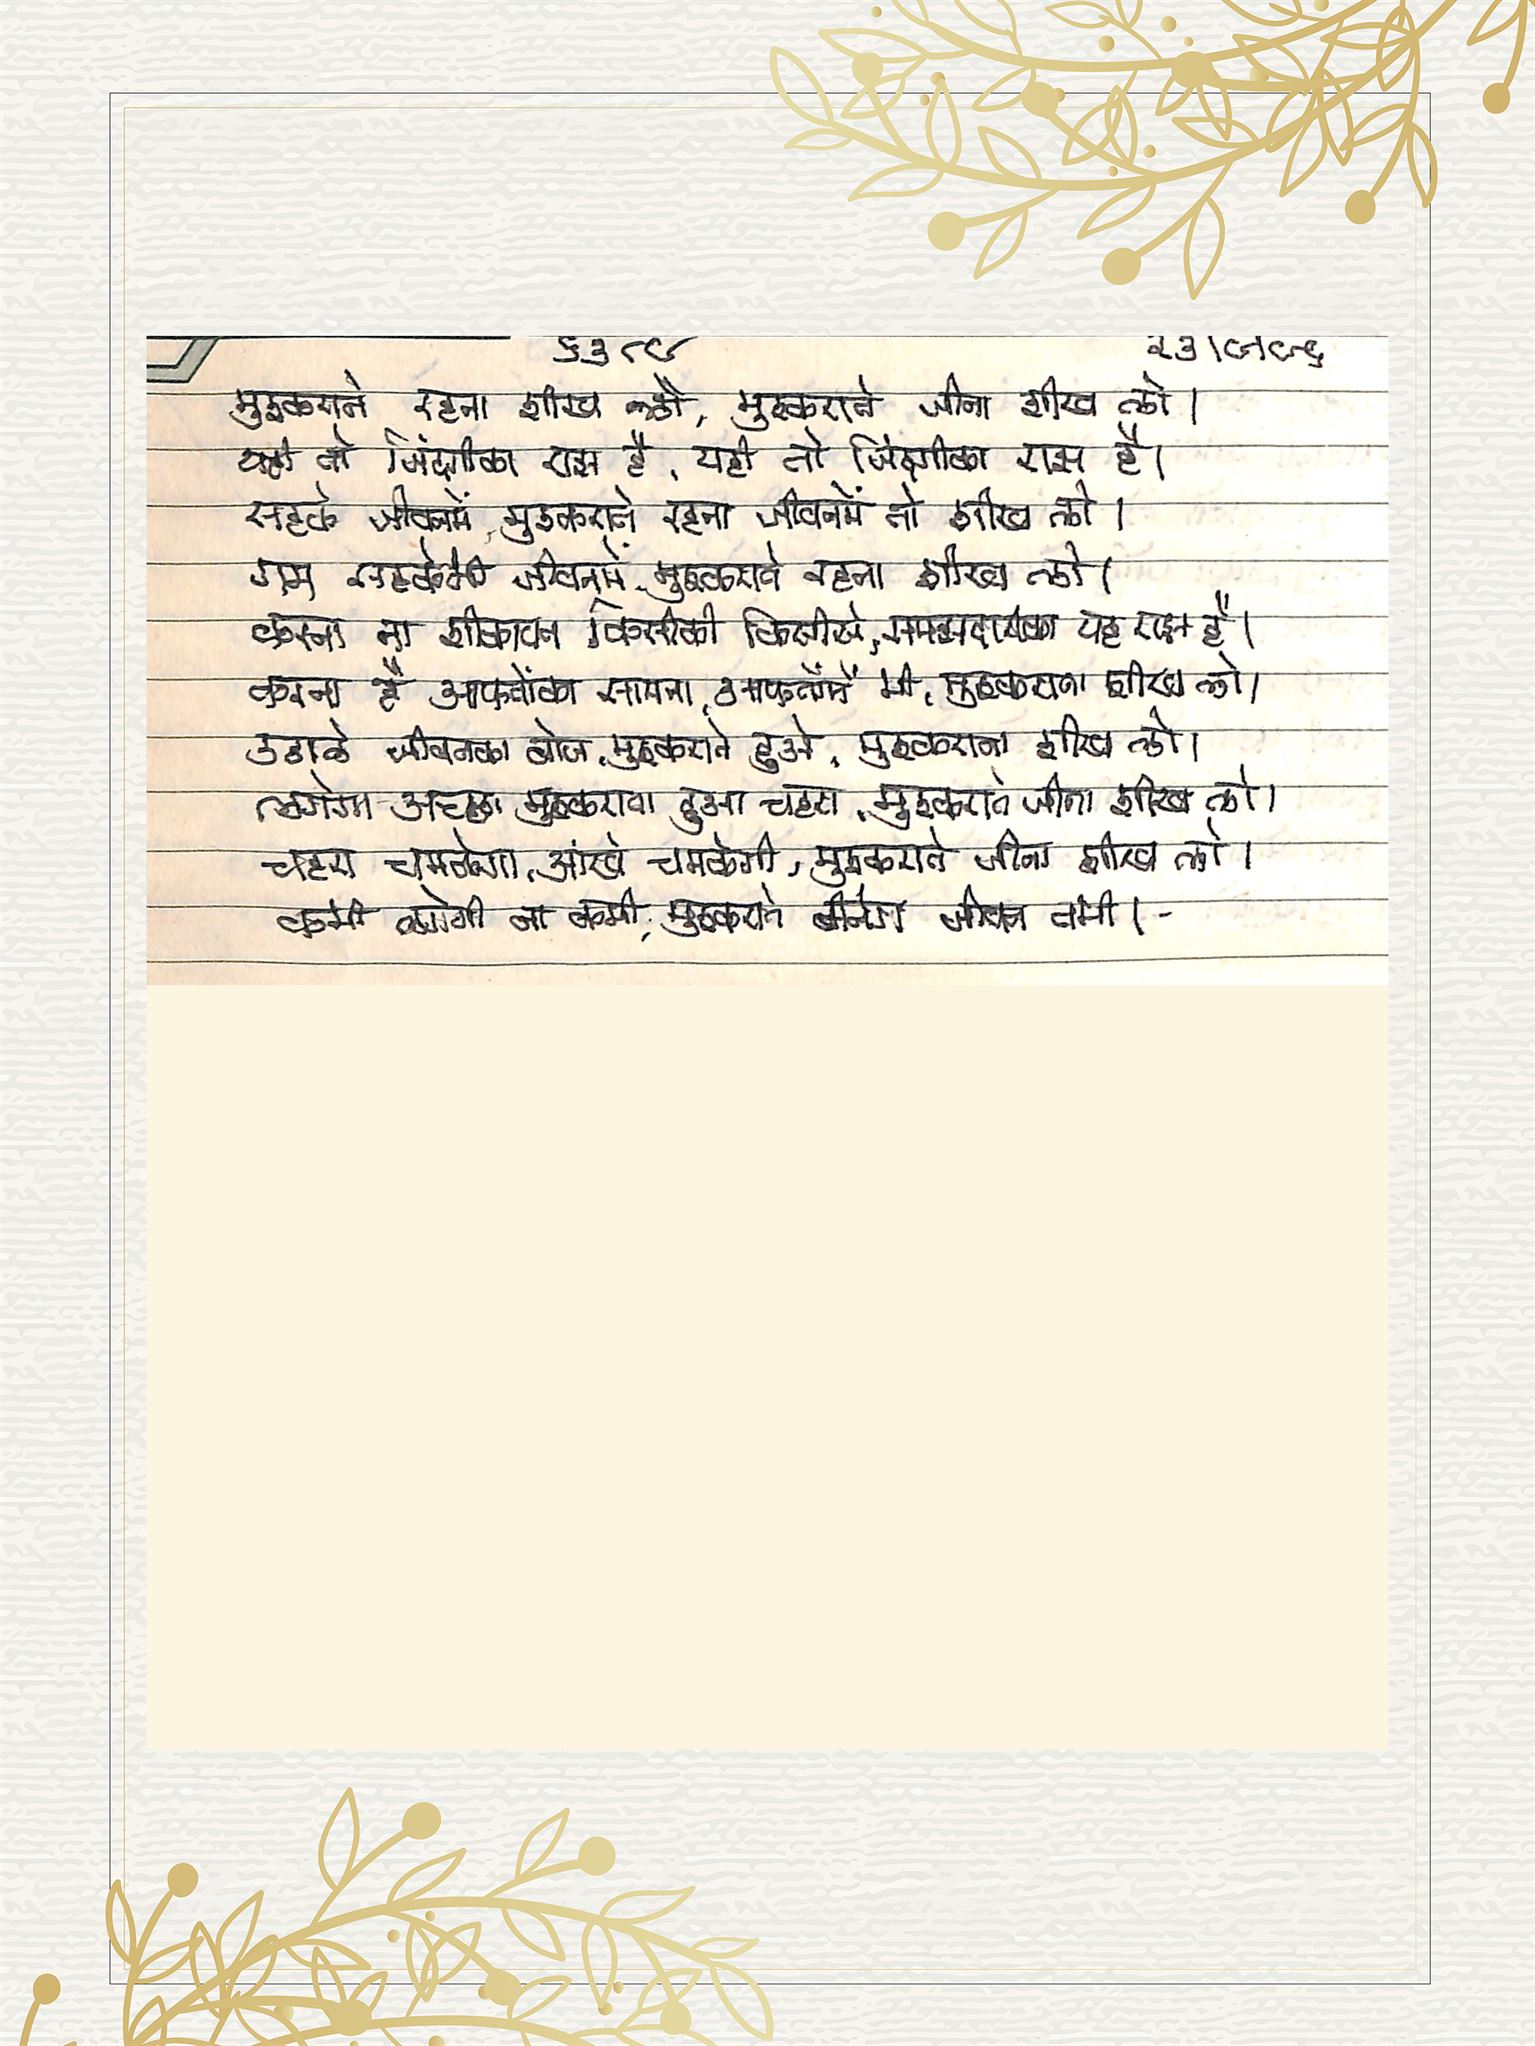 मुस्कराते रहना शीख लो, मुस्कराते जीना शीख लो।
यही तो जिंदगीका राझ है, यही तो जिंदगीका राझ है।
सहके जीवनमें, मुस्कराते रहना जीवनमें तो शीख लो।
गम सहकेभी जीवनमें, मुस्कराते रहना शीख लो।
करना ना शीकायत किसीकी किसीसे, समझदारीका यह राझ है।
करना है आफतोंका सामना, आफतोंमें भी, मुस्कराना शीख लो।
उठाके जीवनका बोज, मुस्कराते हुओ, मुस्कराना शीख लो।
लगेगा अच्छा मुस्कराता हुआ चहरा, मुस्कराते जीना शीख लो।
चहरा चमकेगा, आंखे चमकेगी, मुस्कराते जीना शीख लो।
कमी लगेगी ना कभी, मुस्कराते जीवन तभी।-